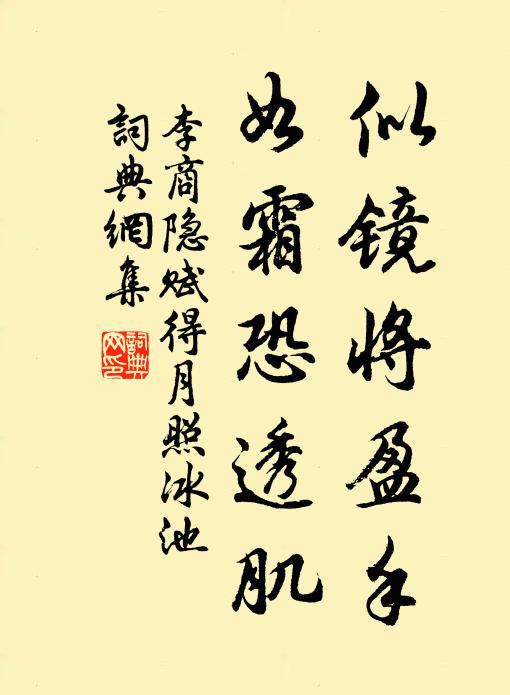 似镜将盈手
如霜恐透肌
李商隐赋得月照冰池
詞典網集
詞典网印